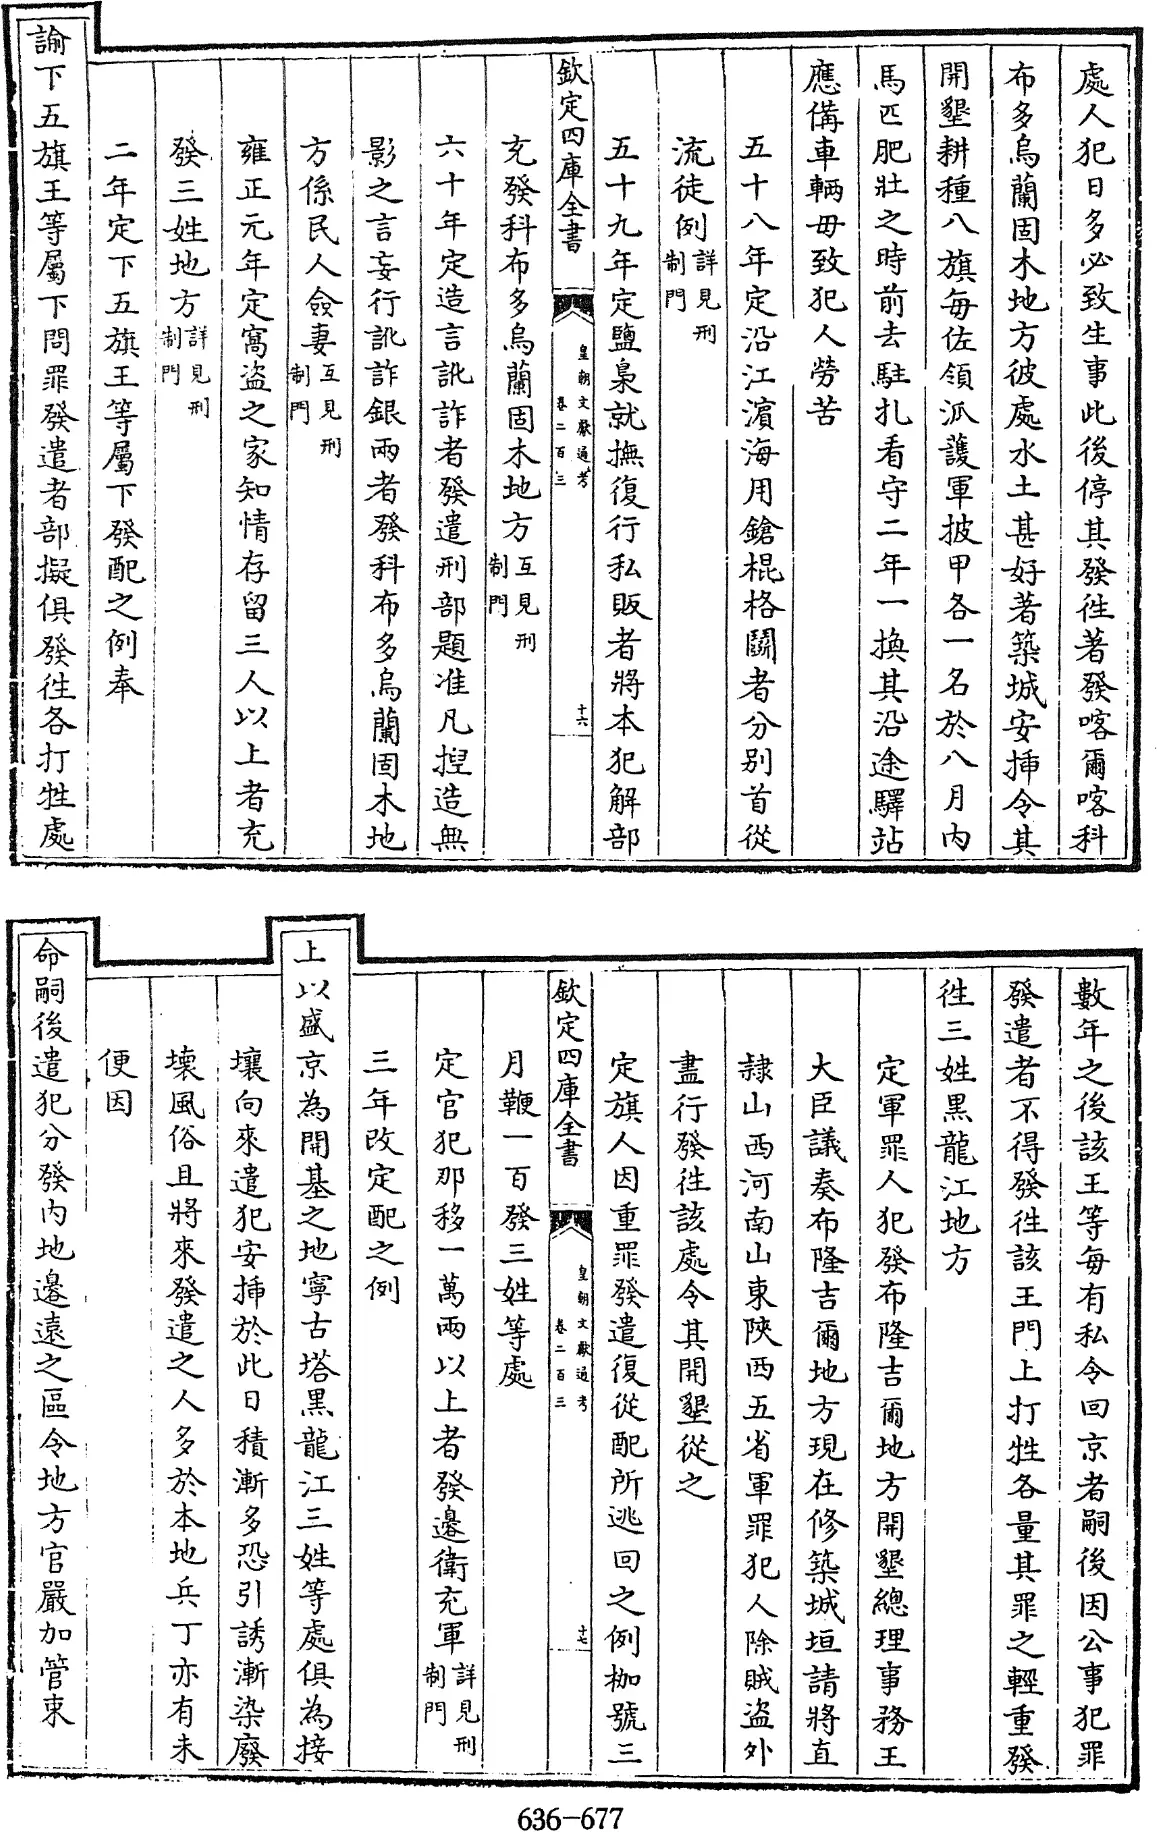 處人犯日多必致生事此後停其發徃著發喀爾喀科
布多烏蘭固木地方彼處水土甚好著築城安揷令其
開墾耕種八旗每佐領派護軍披甲各一名於八月內
馬匹肥壯之時前去駐扎看守二年一換其沿途驛站
應備車輛毋致犯人勞苦
五十八年定沿江濵海用鎗棍格鬬者分別首從
流徒例詳見刑
制門
五十九年定鹽梟就撫復行私販者將本犯解部
欽定四庫全書
皇朝文獻通考
卷二百三
十六
充發科布多烏蘭固木地方互見刑
制門
六十年定造言訛詐者發遣刑部題准凡揑造無
影之言妄行訛詐銀兩者發科布多烏蘭固木地
方係民人僉妻互見刑
制門
雍正元年定窩盜之家知情存留三人以上者充
發三姓地方詳見刑
制門
二年定下五旗王等屬下發配之例奉
諭下五旗王等屬下問罪發遣者部擬俱發徃各打牲處
數年之後該王等每有私令回京者嗣後因公事犯罪
發遣者不得發徃該王門上打牲各量其罪之輕重發
徃三姓黑龍江地方
定軍罪人犯發布隆吉爾地方開墾總理事務王
大臣議奏布隆吉爾地方現在修築城垣請將直
隸山西河南山東陝西五省軍罪犯人除賊盜外
盡行發徃該處令其開墾從之
定旗人因重罪發遣復從配所逃回之例枷號三
欽定四庫全書
皇朝文獻通考
卷二百三
十七
月鞭一百發三姓等處
定官犯那移一萬兩以上者發邊衛充軍詳見刑
制門
三年改定配之例
上以盛京為開基之地寧古塔黑龍江三姓等處俱為接
壤向來遣犯安揷於此日積漸多恐引誘漸染廢
壊風俗且將來發遣之人多於本地兵丁亦有未
便因
命嗣後遣犯分發內地邊遠之區令地方官嚴加管束
636-677